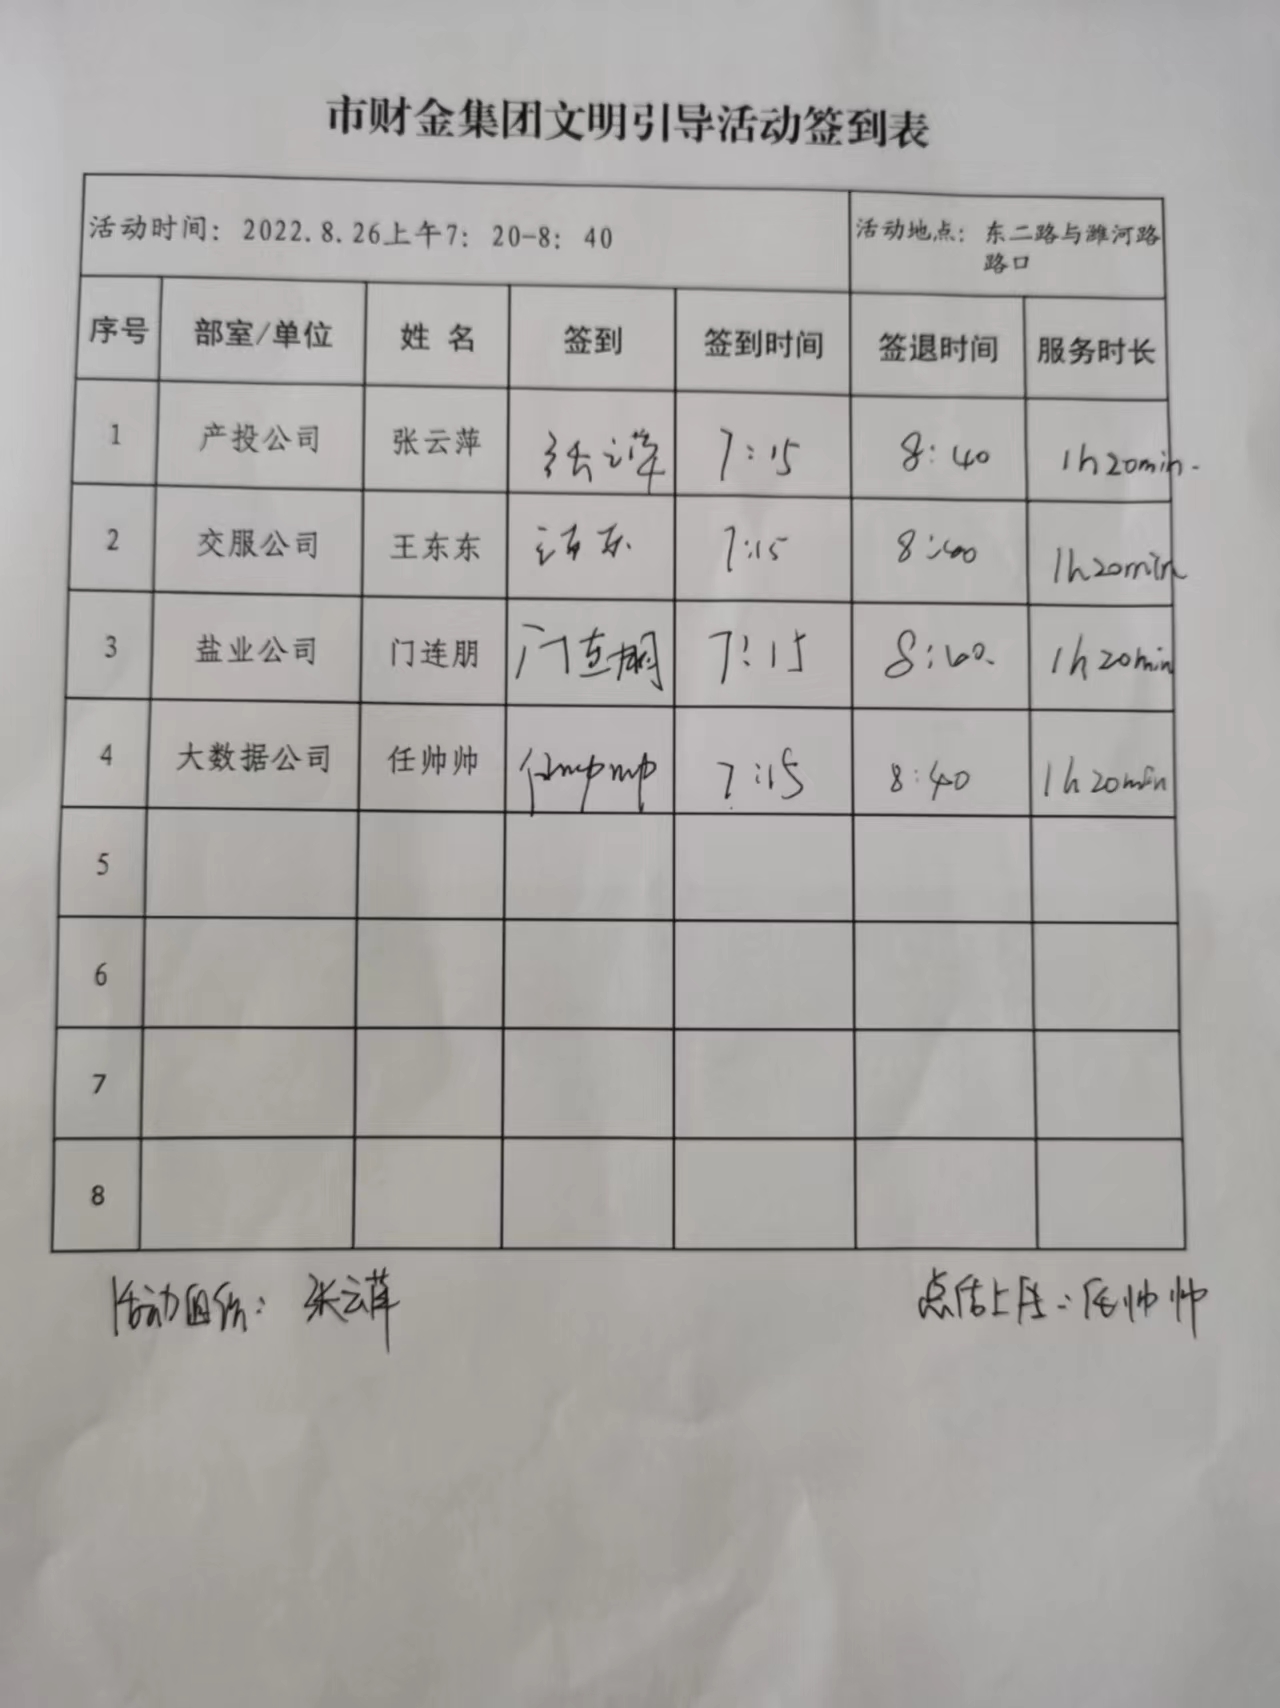 市财金集团文明引导活动签到表
活动时间：2022.8.26上午7：20-8：40
活动地点：东二路与潍河路
路口
序号 部室/单位 姓 名 签到 签到时间 签退时间 服务时长
1 产投公司 张云萍 张云萍 7:15 8:40 1h20min.
2 交服公司 王东东 王东东 7:15 8:40 1h20min
3 盐业公司 门连朋 门连朋 7:15 8:40. 1h20min
4 大数据公司 任帅帅 任帅帅 7:15 8:40 1h20min
5
6
7
8
活动组织：张云萍
任帅帅